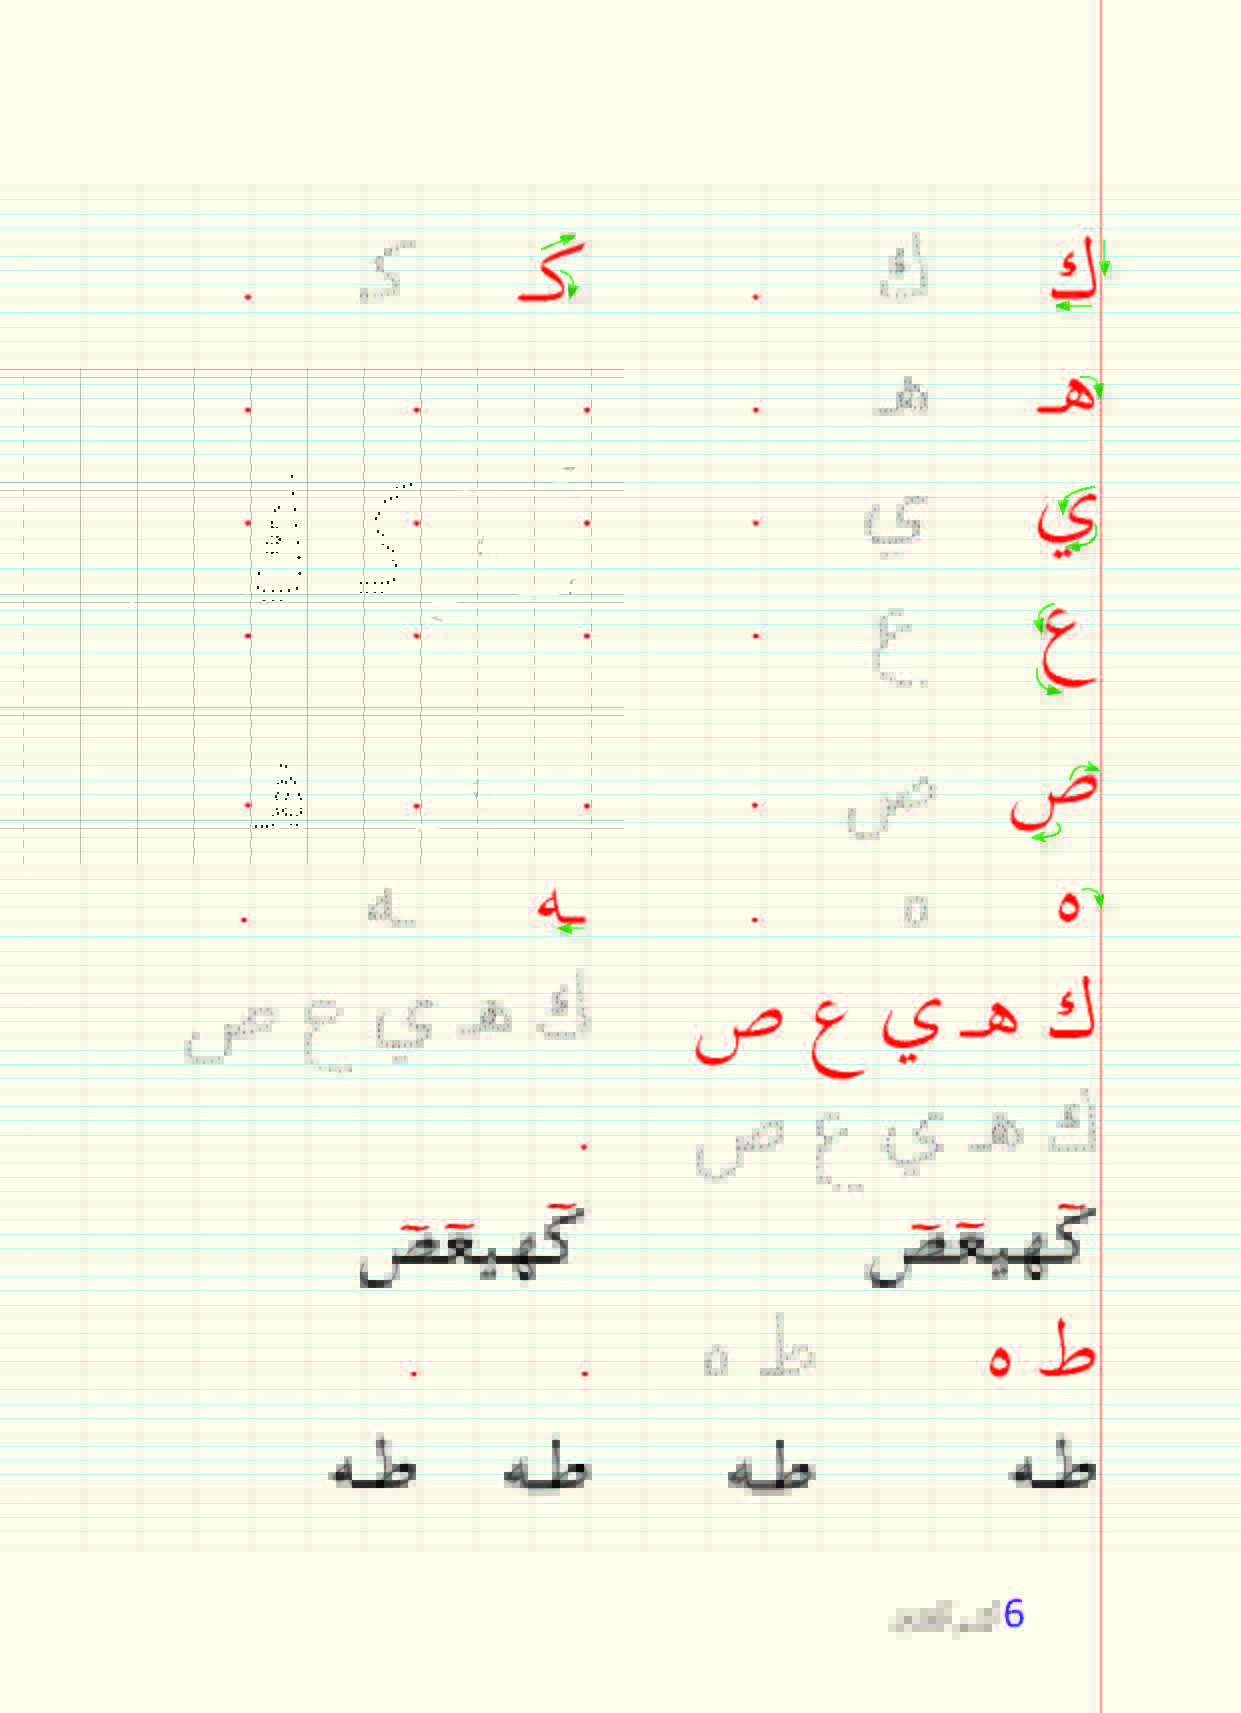 ك ك كـ كـ
هـ هـ
ي ي
ع ع
ص ص
ه ه ـه ـه
ك هـ ي ع ص ك هـ ي ع ص
ك هـ ي ع ص
كٓهيعٓصٓ كٓهيعٓصٓ
ط ه ط ه
طه طه طه طه
6